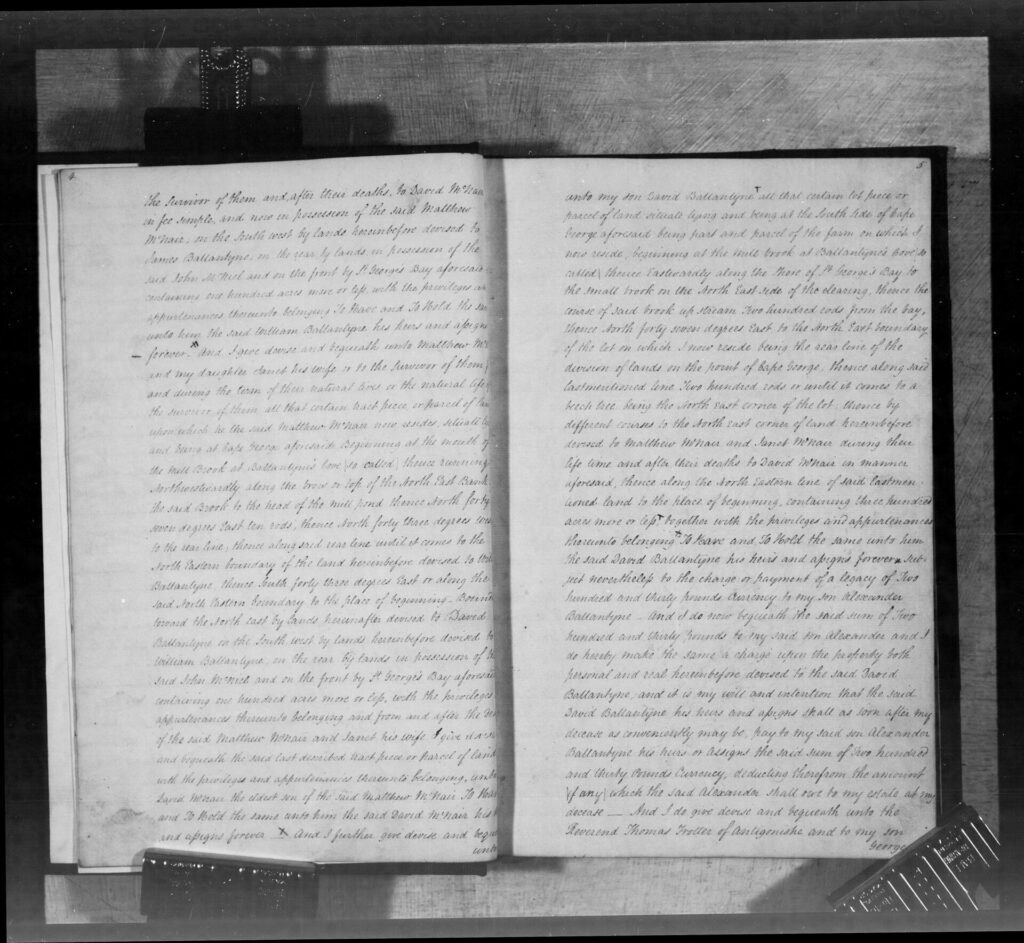 4.
the Survivor of them and, after their deaths, to David McNair
in fee simple, and now in possession of the said Matthew
McNair, on the South west by lands hereinbefore devised to
James Ballantyne, on the rear by lands in possession of the
said John McNiel and on the front by St George's Bay aforesaid
containing one hundred acres more or less, with the privileges
appurtenances thereunto belonging To Have and To Hold the
unto him the said William Ballantyne his heirs and assigns
forever. And I give devise and bequeath unto Matthew
and my daughter Janet his wife, or to the Survivor of them,
and during the term of their natural lives or the natural life
the survivor of them all that certain tract piece, or parcel of
upon which he the said Matthew McNair now resides situate
and being at Cape George aforesaid Beginning at the mouth of
the Mill Brook at Ballantyne's Cove (so called) thence running
Northwestwardly along the brow or top of the North East Bank
the said Brook to the head of the mill pond thence North forty
seven degrees East ten rods, thence North forty three degrees
to the rear line, thence along said rear line until it comes to the
North Eastern boundary of the land hereinbefore devised to
Ballantyne, thence South forty three degrees East or along the
said North Eastern boundary to the place of beginning.
toward the North east by lands hereinafter devised to David
Ballantyne in the South west by lands hereinbefore devised to
William Ballantyne, on the rear by lands in possession of
said John McNiel and on the front by St George's Bay
containing one hundred acres more or less, with the privileges
appurtenances thereunto belonging and from and after the
of the said Matthew McNair and Janet his wife I give
and bequeath the said last described tract piece or parcel of land
with the privileges and appurtenances thereunto belonging, unto
David McNair the eldest son of the said Matthew McNair To Have
and To Hold the same unto him the said David McNair his
and assigns forever X And I further give devise and
unto
5
unto my son David Ballantyne all that certain lot piece or
parcel of land situate lying and being at the South Side of Cape
George aforesaid being part and parcel of the farm on which I
now reside, beginning at the mill brook at Ballantyne's Cove (so
called) thence Eastwardly along the Shore of St George's Bay to
the small brook on the North East side of the clearing, thence the
course of said brook up stream Two hundred rods from the bay,
thence North forty seven degrees East to the North East boundary
of the lot on which I now reside being the rear line of the
division of lands on the point of Cape George, thence along said
lastmentioned line Two hundred rods or until it comes to a
beech tree being the North East corner of the lot; thence by
different courses to the North east corner of land hereinbefore
devised to Matthew McNair and Janet McNair during their
life time and after their deaths to David McNair in manner
aforesaid, thence along the North Eastern line of said lastmen-
tioned land to the place of beginning, containing three hundred
acres more or less together with the privileges and appurtenances
thereunto belonging To Have and To Hold the same unto him
the said David Ballantyne his heirs and assigns forever sub-
ject nevertheless to the charge or payment of a legacy of Two
hundred and thirty pounds Currency to my son Alexander
Ballantyne - And I do now bequeath the said sum of Two
hundred and thirty Pounds to my said son Alexander and I
do hereby make the same a charge upon the property both
personal and real hereinbefore devised to the said David
Ballantyne, and it is my will and intention that the said
David Ballantyne his heirs and assigns shall as soon after my
decease as conveniently may be, pay to my said son Alexander
Ballantyne his heirs or Assigns the said sum of Two hundred
and thirty Pounds Currency, deducting therefrom the amount
(if any) which the said Alexander shall owe to my estate at my
decease — And I do give devise and bequeath unto the
Reverend Thomas Trotter of Antigonishe and to my son
George